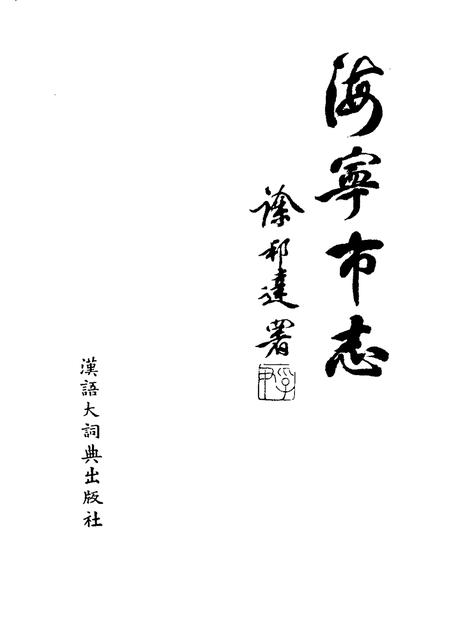 海寧市志
徐邦達署
孚尹
漢語大詞典出版社